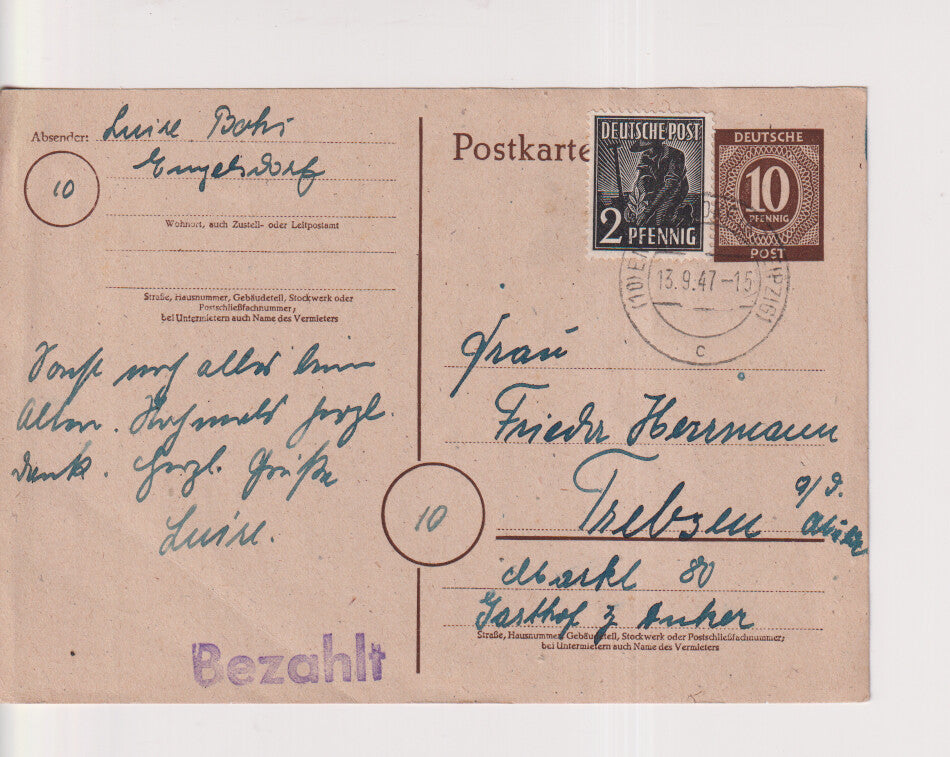 Absender: Luise Bohs
Engelsdorf
10
Wohnort, auch Zustell- oder Leitpostamt
Straße, Hausnummer, Gebäudeteil, Stockwerk oder
Postschließfachnummer;
bei Untermietern auch Name des Vermieters
Sonst noch alles beim
Alten. Nochmals herzl.
Dank. Herzl. Grüße
Luise.
Bezahlt
Postkarte
DEUTSCHE POST
2 PFENNIG
DEUTSCHE
10
PFENNIG
POST
13.9.47-15
c
Frau
Frieda Herrmann
Trebsen a/d.
Mulde
10
Markt 80
Gasthof z Anker
Straße, Hausnummer, Gebäudeteil, Stockwerk oder Postschließfachnummer;
bei Untermietern auch Name des Vermieters